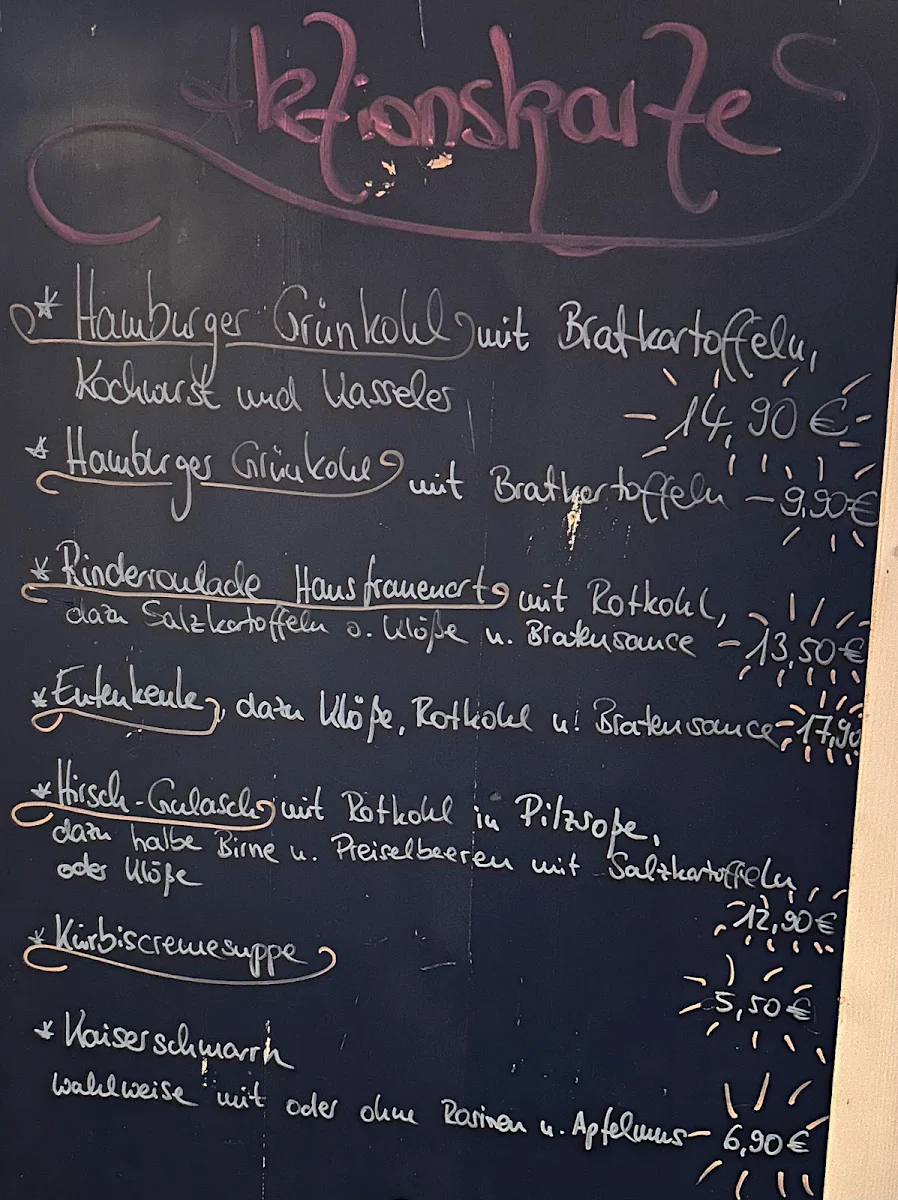 Aktionskarte
* Hamburger Grünkohl mit Bratkartoffeln,
Kochwurst und Kasseler
- 14,90 € -
* Hamburger Grünkohl mit Bratkartoffeln - 9,90 €
* Rinderroulade Hausfrauenart mit Rotkohl,
dazu Salzkartoffeln o. Klöße u. Bratensauce - 13,50 €
* Entenkeule, dazu Klöße, Rotkohl u. Bratensauce - 17,90
* Hirsch-Gulasch mit Rotkohl in Pilzsoße,
dazu halbe Birne u. Preiselbeeren mit Salzkartoffeln
oder Klöße
12,90 €
* Kürbiscremesuppe
5,50 €
* Kaiserschmarrn
wahlweise mit oder ohne Rosinen u. Apfelmus - 6,90 €